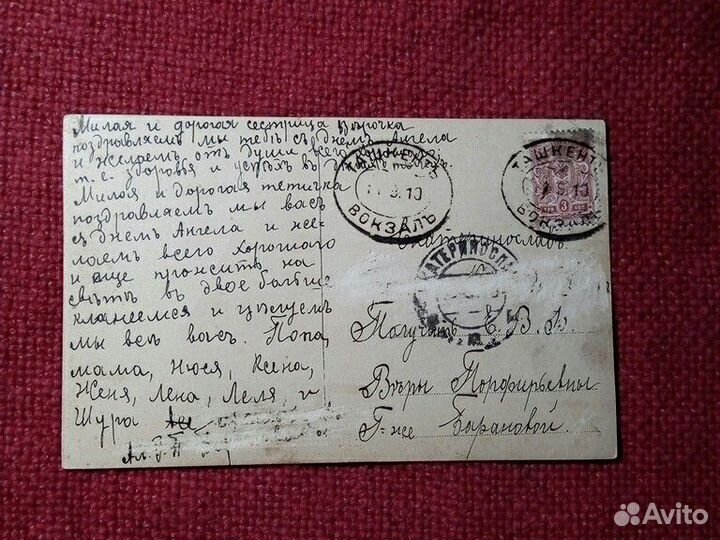 Милая и дорогая сестрица Вѣрочка
поздравляем мы тебѣ съ днем Ангела
и желаем отъ души всего
т.е. здоровья и успѣх въ
Милая и дорогая тетичка
поздравляем мы васъ
съ Днем Ангела и же-
лаем всего хорошаго
и еще прожить на
свѣтѣ въ двое больше
кланяемся и цѣлуем
мы всѣ васъ. Папа,
мама, Нюся, Ксена,
Женя, Лена, Леля, и
Шура
ТАШКЕНТЪ
9.10
ВОКЗАЛЪ
ТАШКЕНТЪ
9.10
ВОКЗАЛЪ
3
Екатеринославъ
ЕКАТЕРИНОСЛ
Получить Е. В. Б.
Вѣры Порфирьевны
Г-же Барановой
Avito